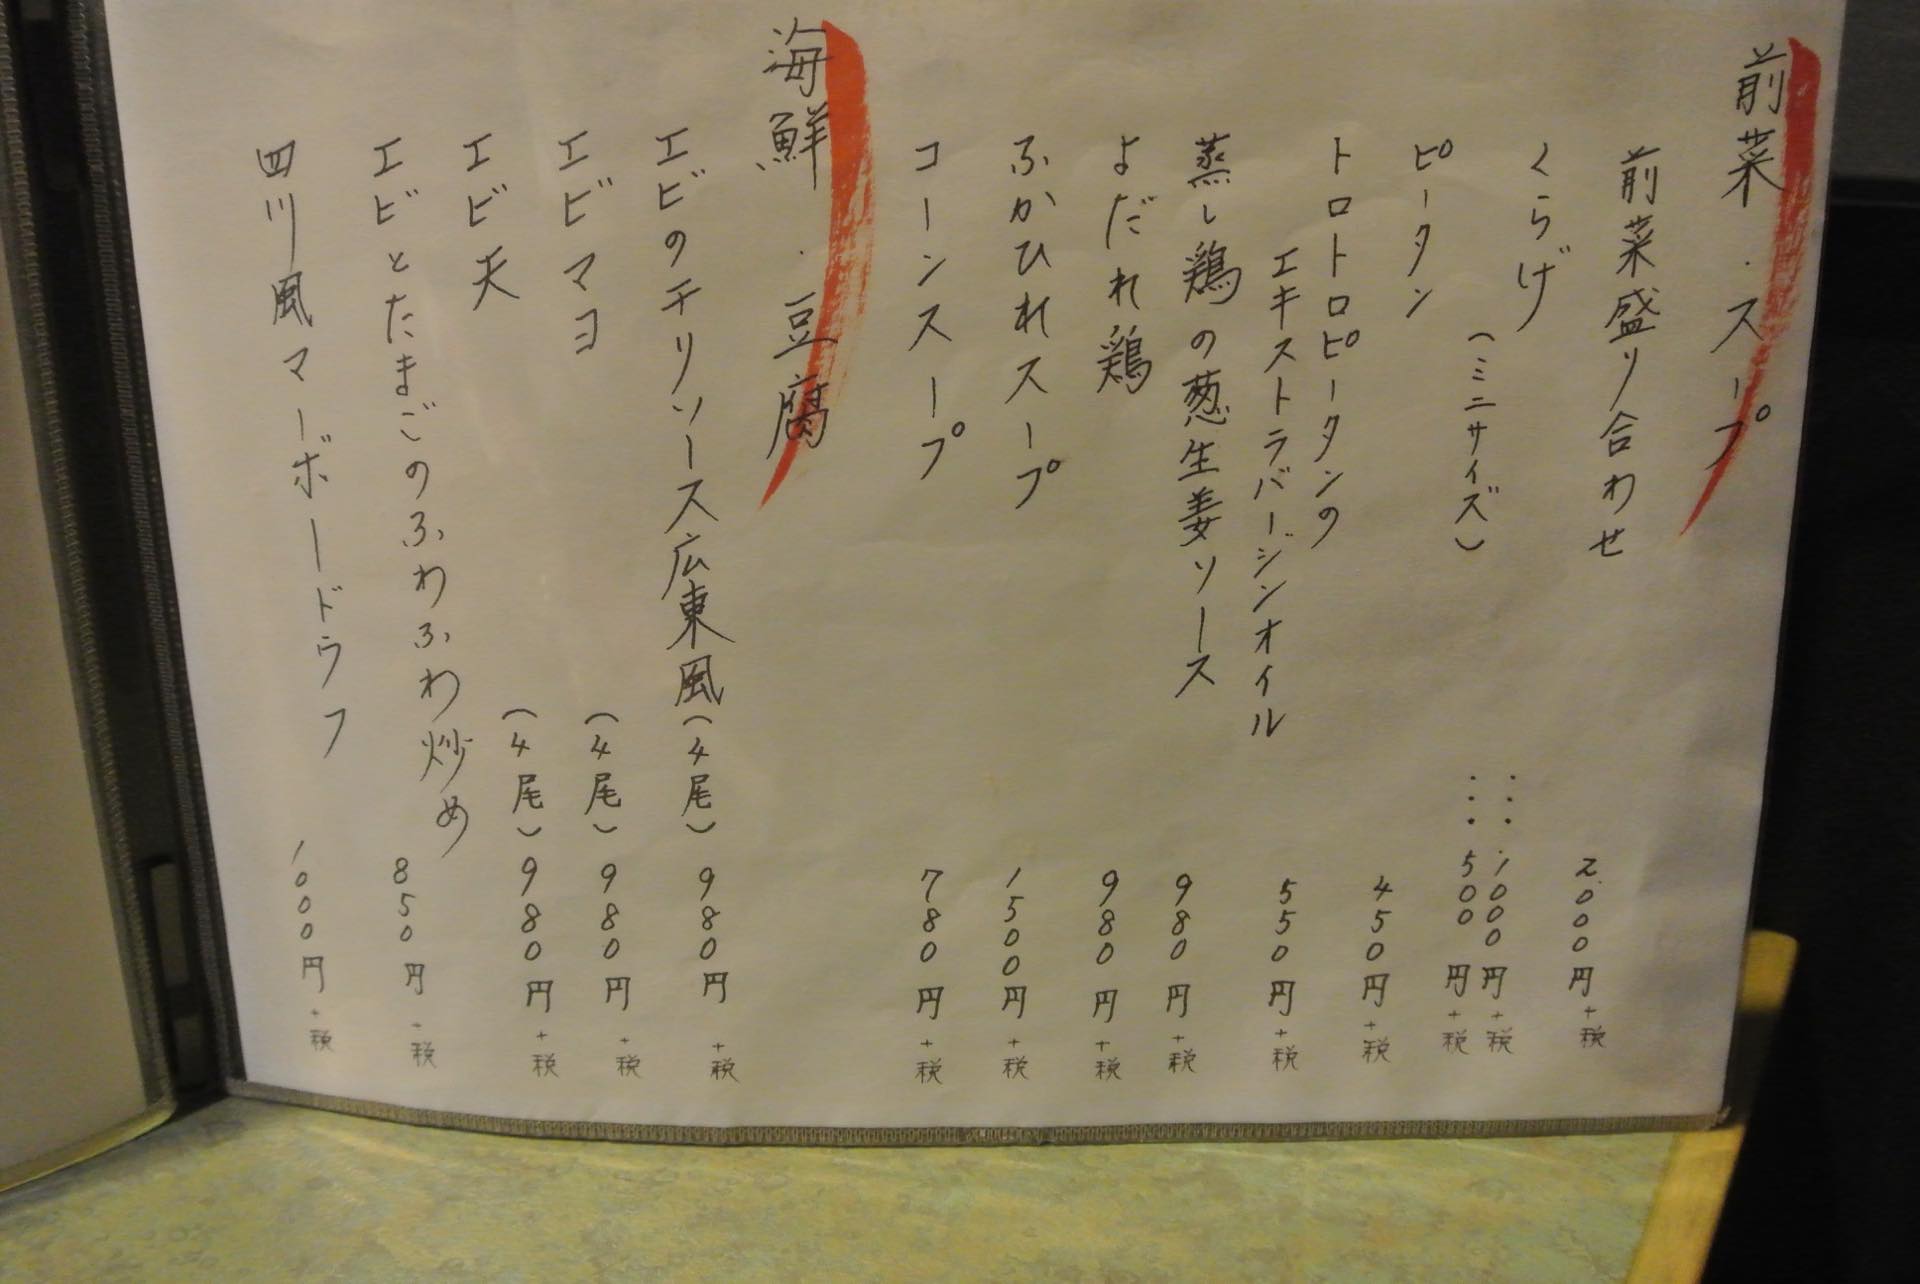 前菜・スープ
前菜盛り合わせ 2000円+税
くらげ ……1000円+税
(ミニサイズ) ……500円+税
ピータン 450円+税
トロトロピータンの
エキストラバージンオイル 550円+税
蒸し鶏の葱生姜ソース 980円+税
よだれ鶏 980円+税
ふかひれスープ 1500円+税
コーンスープ 780円+税
海鮮・豆腐
エビのチリソース広東風(4尾) 980円+税
エビマヨ (4尾) 980円+税
エビ天 (4尾) 980円+税
エビとたまごのふわふわ炒め 850円+税
四川風マーボードウフ 1000円+税